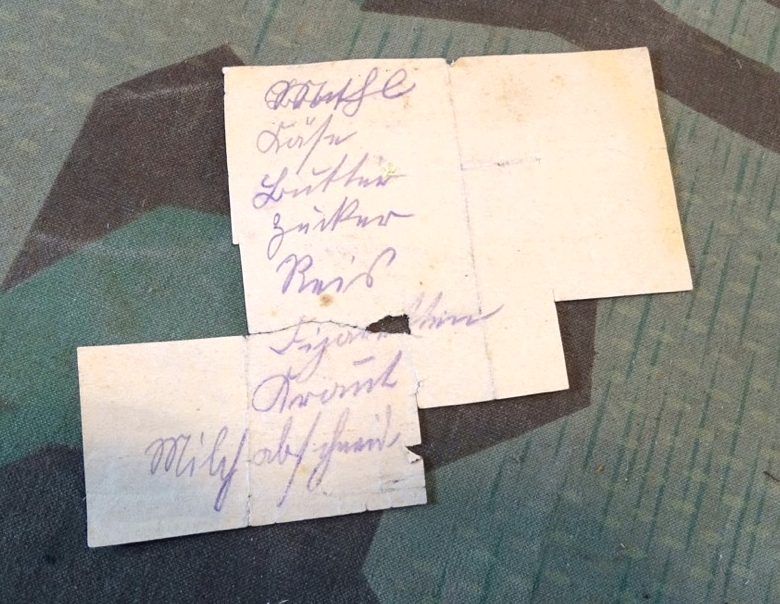 Mehl
Käse
Butter
Zucker
Reis
Zigaretten
Kraut
Milch abschneid